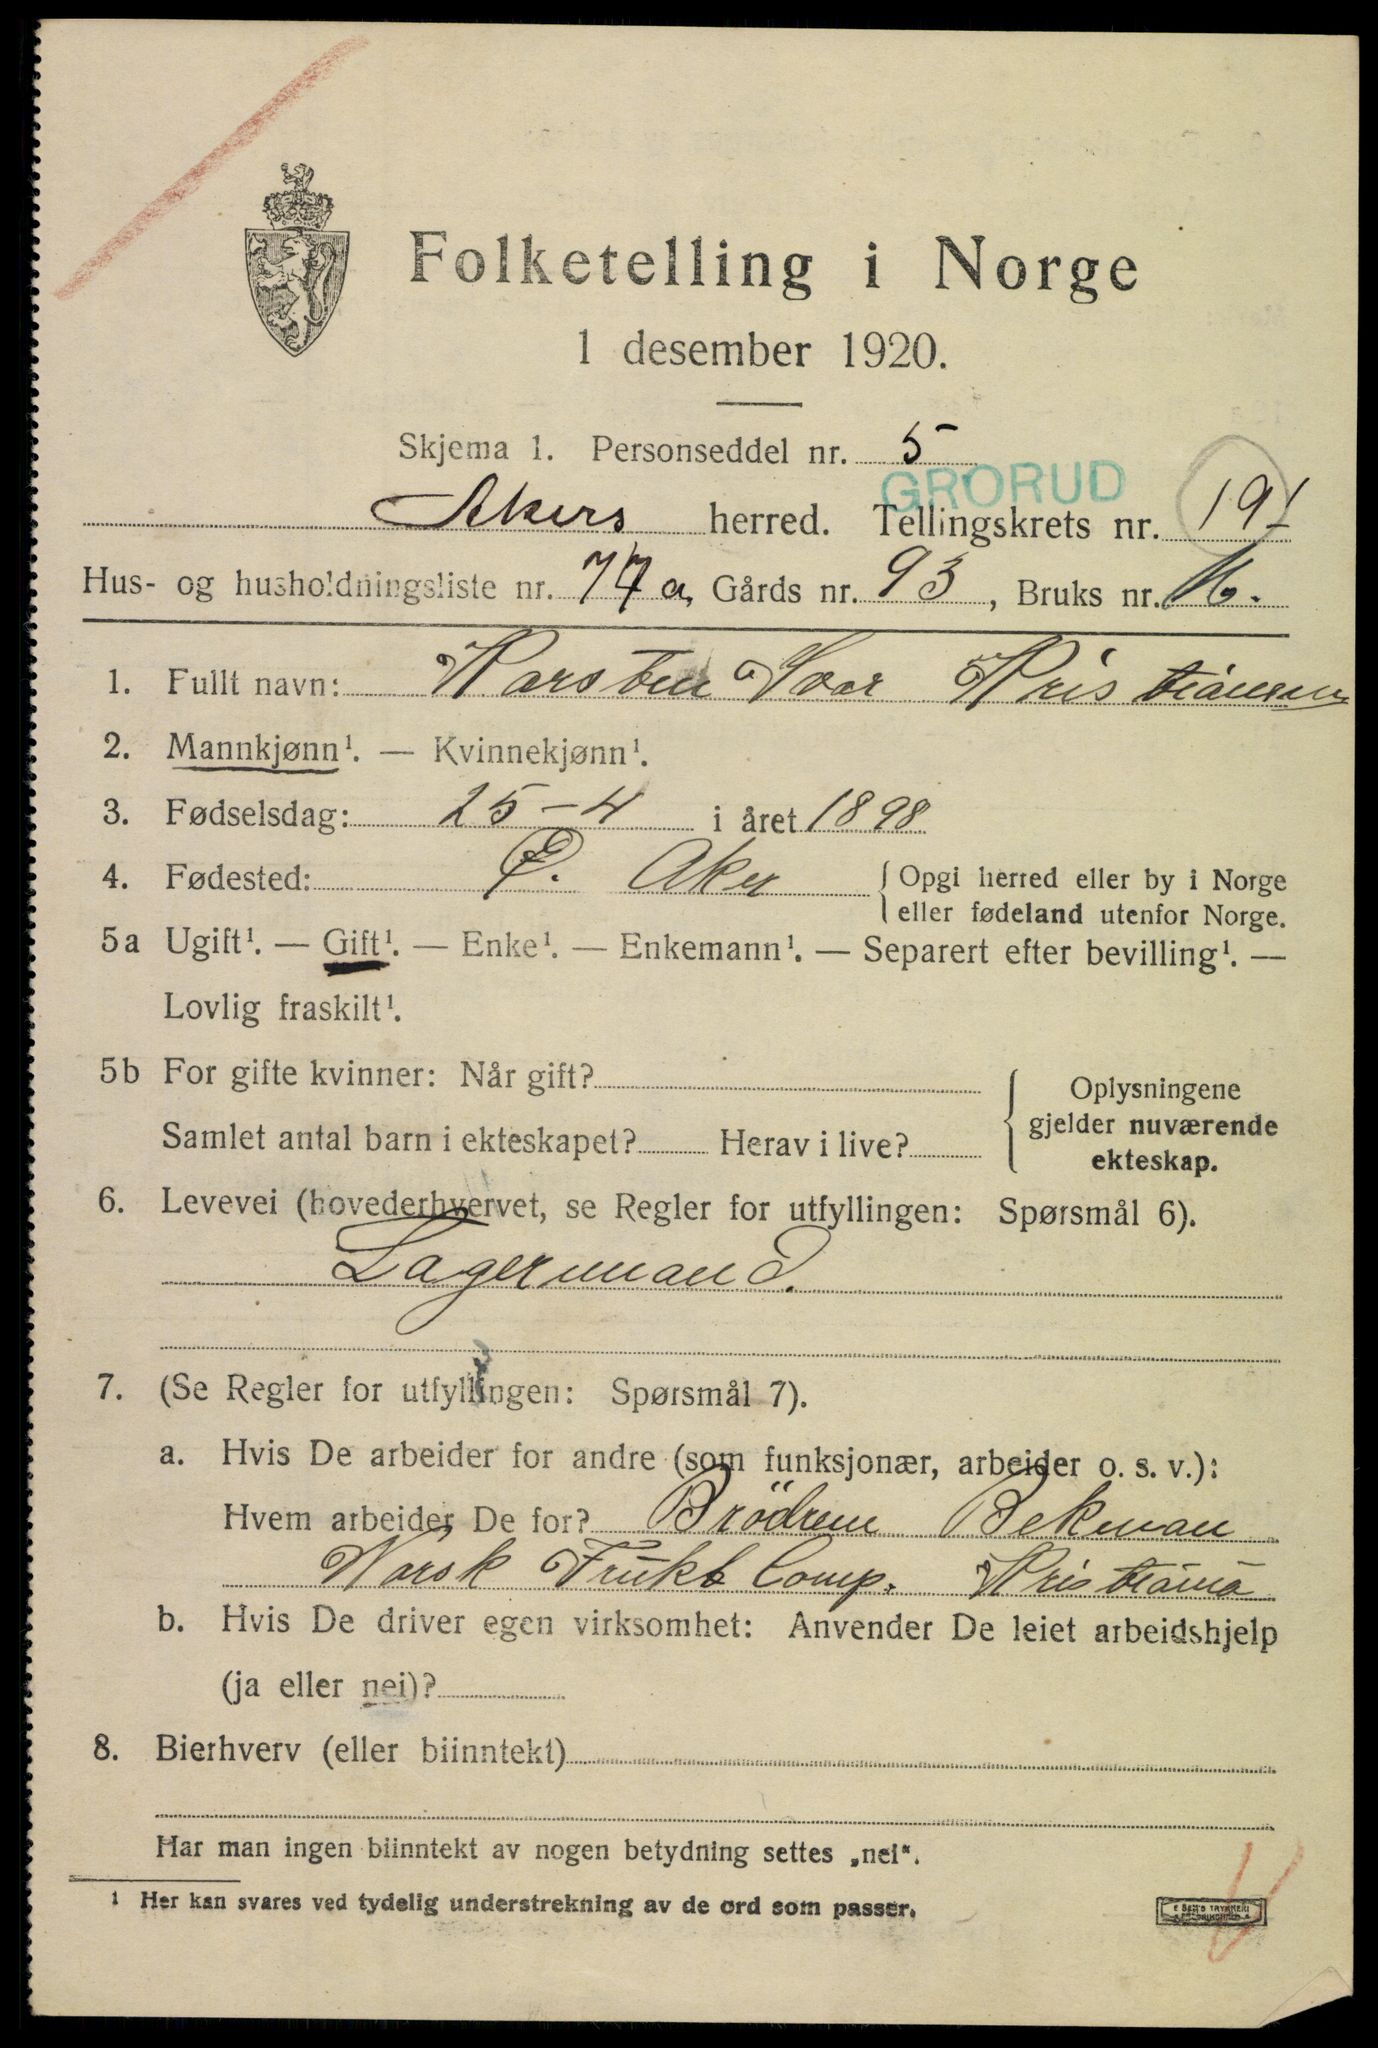 Folketelling i Norge
1 desember 1920.
Skjema 1. Personseddel nr. 5
GRORUD
Akers herred. Tellingskrets nr. 19
Hus- og husholdningsliste nr. 77a, Gårds nr. 93, Bruks nr.
1. Fullt navn: Karsten Ivar Kristiansen
2. Mannkjønn¹. — Kvinnekjønn¹.
3. Fødselsdag: 25-4 i året 1898
4. Fødested: Ø. Aker { Opgi herred eller by i Norge
eller fødeland utenfor Norge.
5a Ugift¹. — Gift¹. — Enke¹. — Enkemann¹. — Separert efter bevilling¹. —
Lovlig fraskilt¹.
5b For gifte kvinner: Når gift? { Oplysningene
gjelder nuværende
Samlet antal barn i ekteskapet? Herav i live?
ekteskap.
6. Levevei (hovederhvervet, se Regler for utfyllingen: Spørsmål 6).
Lagermand.
7. (Se Regler for utfyllingen: Spørsmål 7).
a. Hvis De arbeider for andre (som funksjonær, arbeider o. s. v.):
Hvem arbeider De for? Brödrene Bekman
Norsk Frukt Comp. Kristiania
b. Hvis De driver egen virksomhet: Anvender De leiet arbeidshjelp
(ja eller nei)?
8. Bierhverv (eller biinntekt)
Har man ingen biinntekt av nogen betydning settes „nei".
¹ Her kan svares ved tydelig understrekning av de ord som passer.